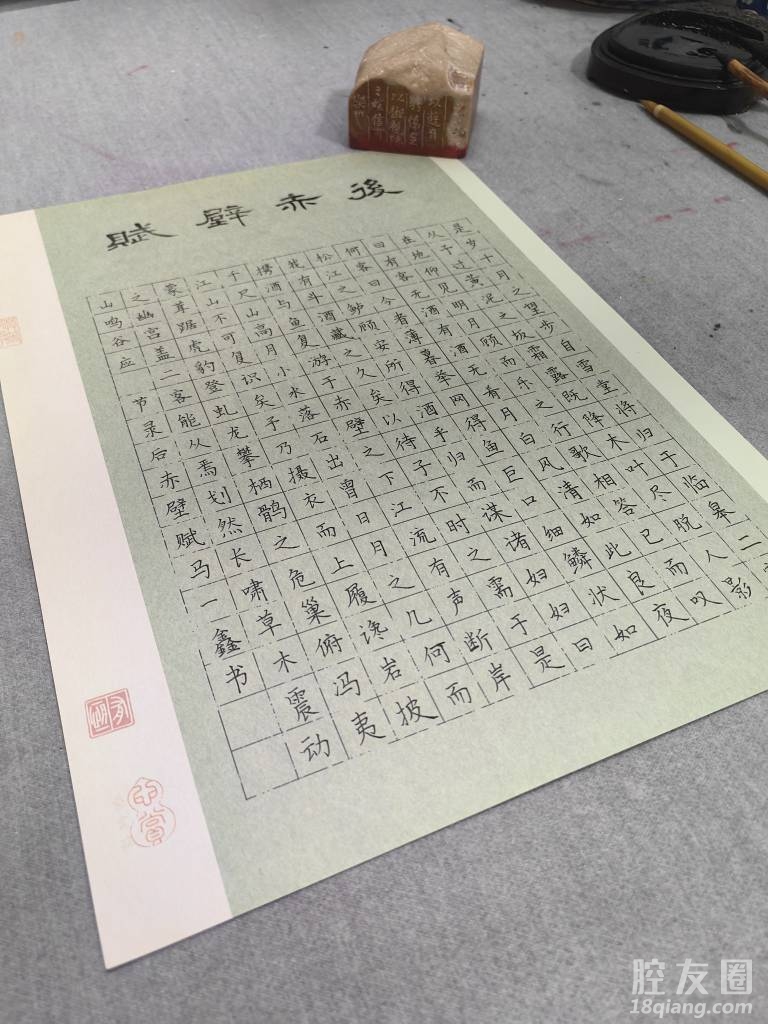 後赤壁賦
是岁十月之望步自雪堂将归于临皋二
从予过黄泥之坂霜露既降木叶尽脱人影
在地仰见明月顾而乐之行歌相答已而叹
曰有客无酒有酒无肴月白风清如此良夜
何客曰今者薄暮举网得鱼巨口细鳞状如
松江之鲈顾安所得酒乎归而谋诸妇妇曰
我有斗酒藏之久矣以待子不时之需于是
携酒与鱼复游于赤壁之下江流有声断岸
千尺山高月小水落石出曾日月之几何而
江山不可复识矣予乃摄衣而上履谗岩披
蒙茸踞虎豹登虬龙攀栖鹘之危巢俯冯夷
之幽宫盖二客能从焉划然长啸草木震动
山鸣谷应 节录后赤壁赋马一鑫书
腔友圈
18qiang.com